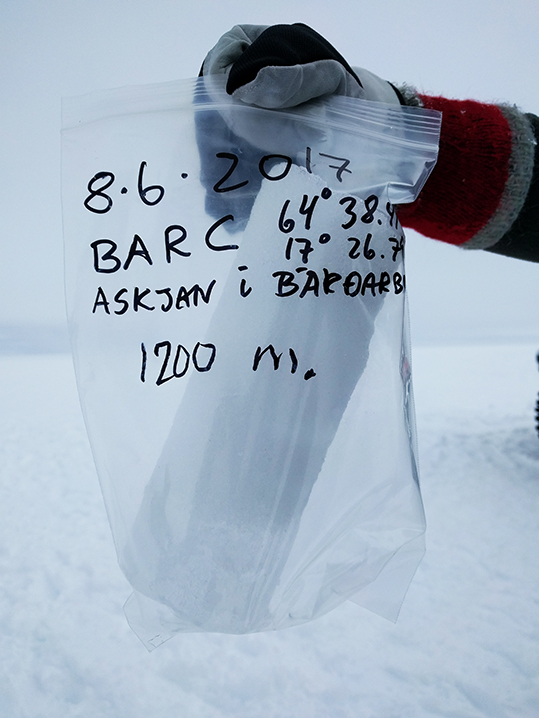 8.6.2017
BARC 64° 38.
17° 26.7
ASKJAN i BÁRÐARB
1200 m.